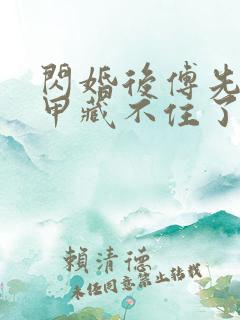 閃婚後傅先
甲藏不住了
賴清德
未任同意禁止转载